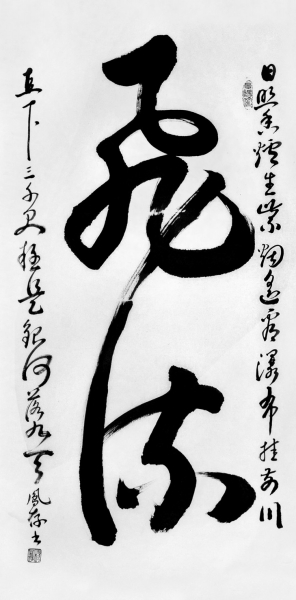 日照香爐生紫烟遙看瀑布挂前川
飛流
直下三千尺疑是銀河落九天